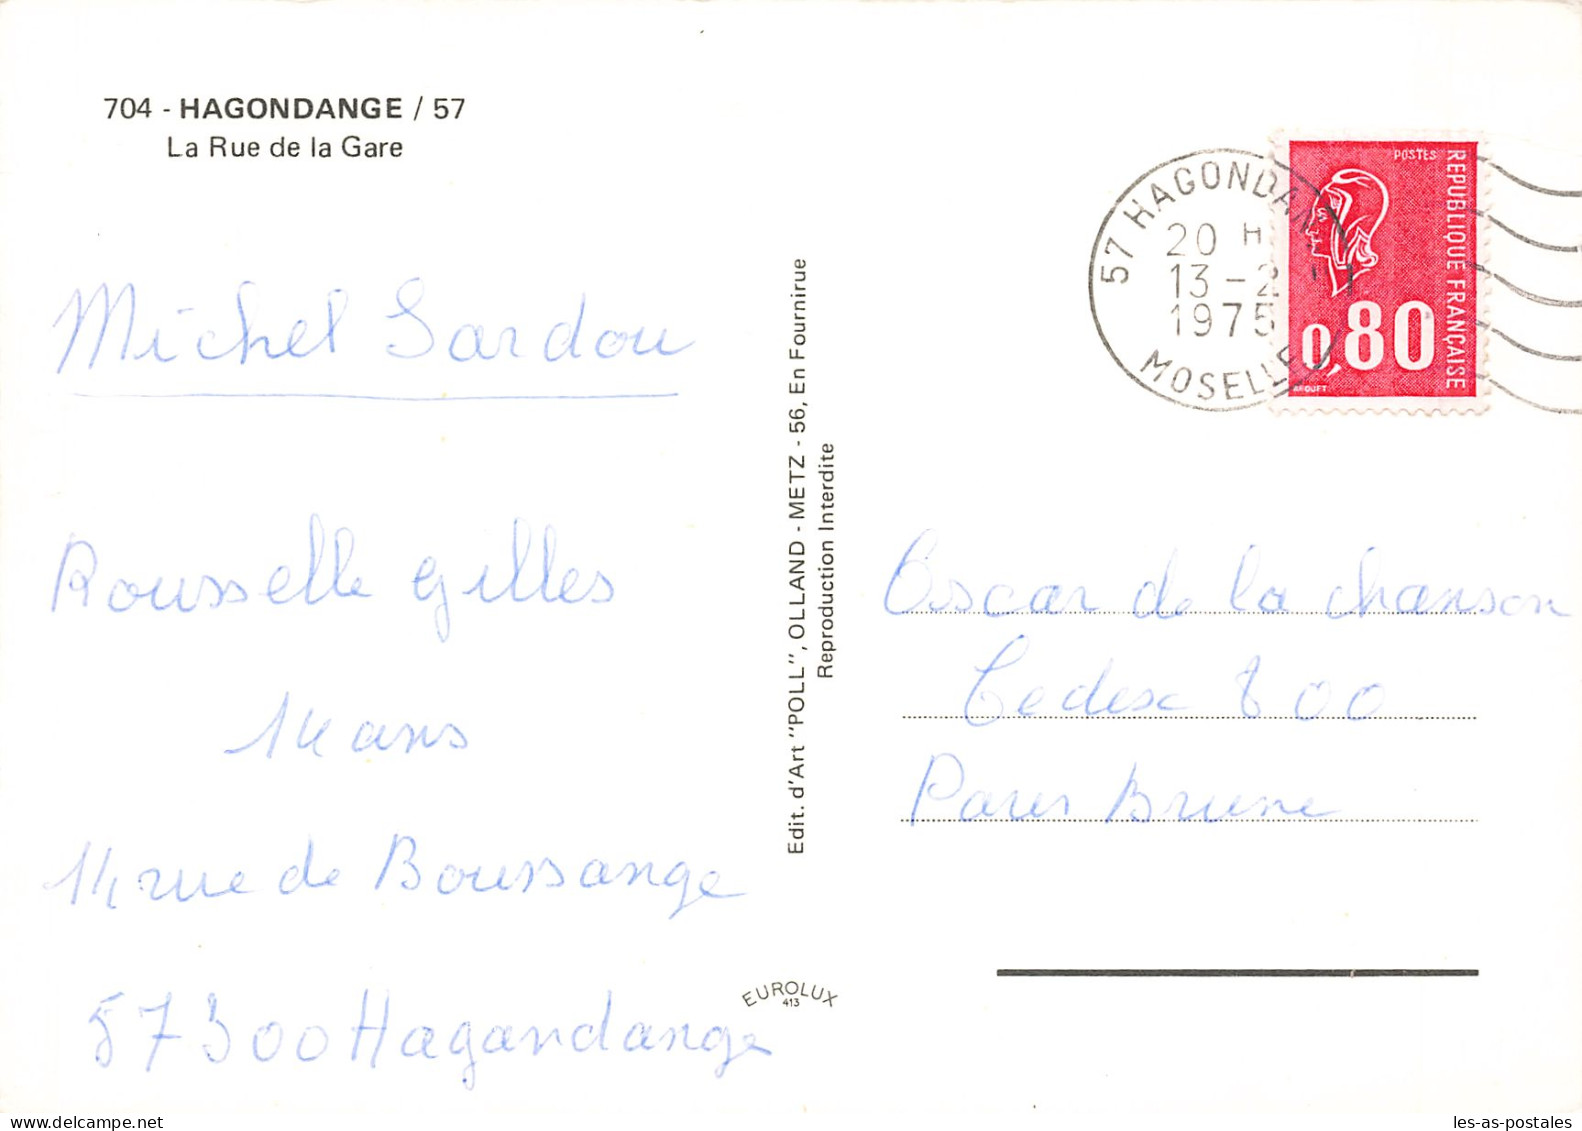 704 - HAGONDANGE / 57
La Rue de la Gare
Michel Sardou
Rousselle Gilles
14 ans
14 rue de Boussange
57300 Hagondange
Edit. d'Art "POLL", OLLAND - METZ - 56, En Fournirue
Reproduction Interdite
EUROLUX
413
57 HAGONDAN
20 H
13 - 2
1975
MOSELLE
POSTES
REPUBLIQUE FRANÇAISE
0,80
Oscar de la chanson
Cedex 800
Paris Brune
les-as-postales